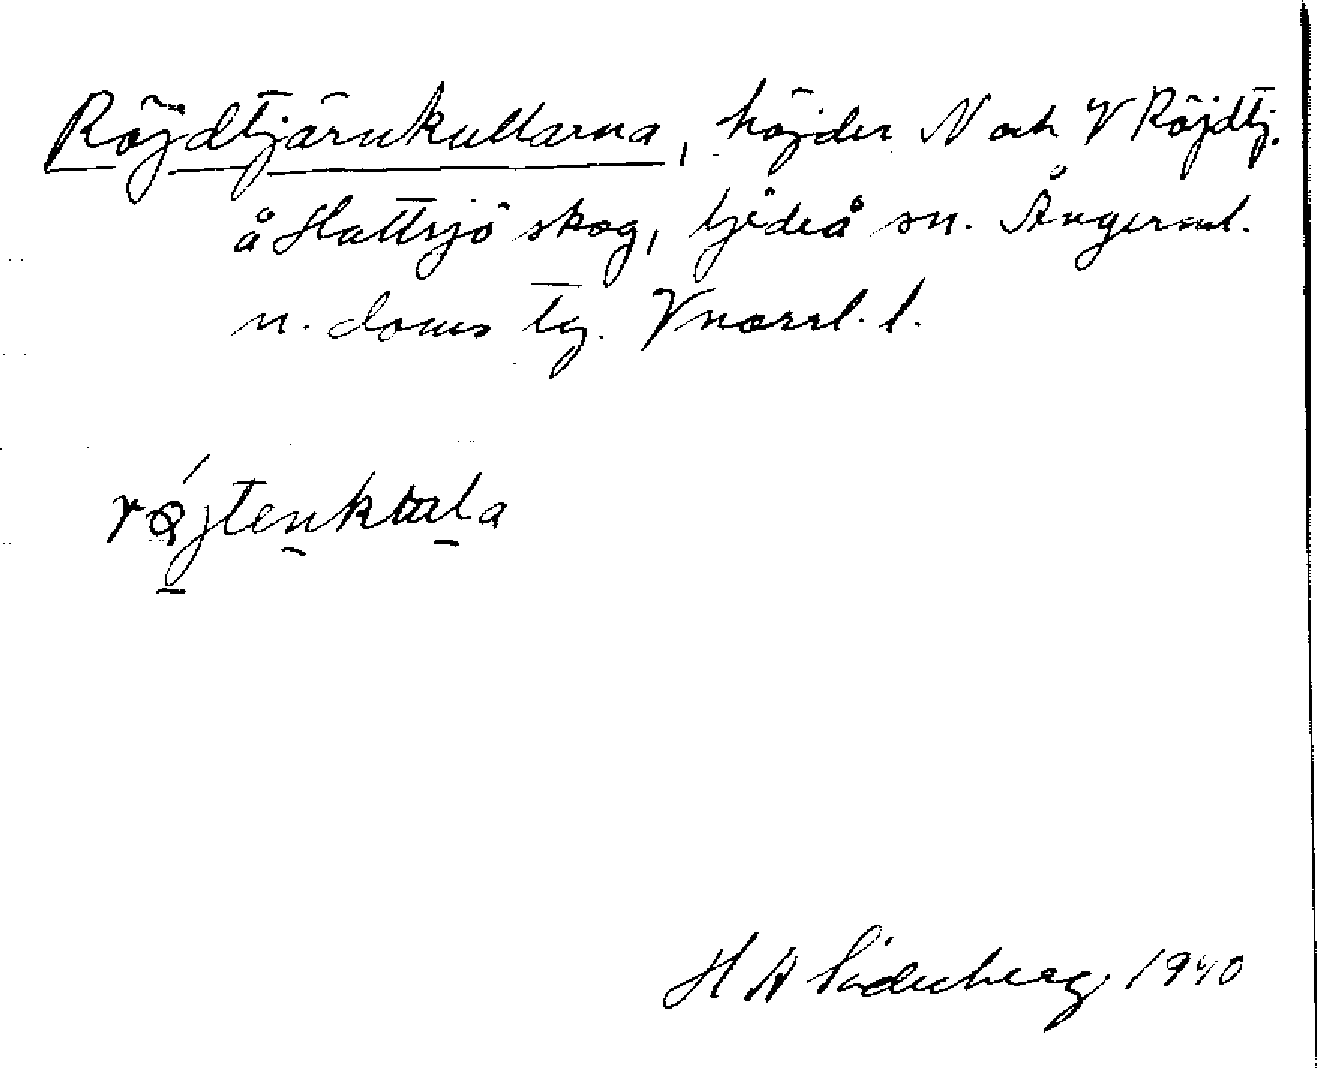 Röjdtjärnkullarna, höjder N och V Röjdtj.
å Hattsjö skog, Gideå sn. Ångerml.
n. doms tg. Vnorrl. l.
H A Söderberg 1940